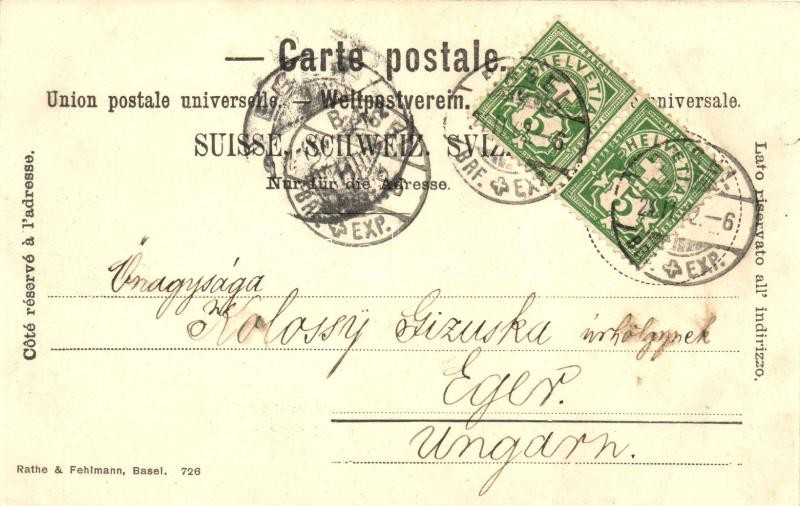 — Carte postale.
Union postale universelle. — Weltpostverein. universale.
SUISSE. SCHWEIZ. SVIZ
Nur für die Adresse.
Côté réservé à l'adresse.
Lato riservato all' indirizzo.
HELVETIA
5
HELVETIA
5
BRF. EXP.
BRF. EXP.
EXP.
Önagysága
Kolossy Gizuska úrhölgynek
Eger.
Ungarn.
Rathe & Fehlmann, Basel. 726